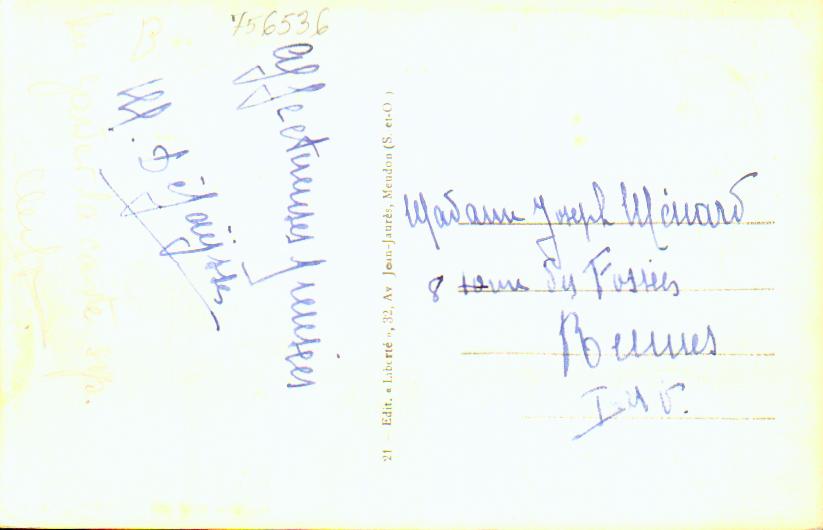 756536
B
Affectueuses pensées
M. Défaysses
21 — Edit. « Liberté », 32, Av. Jean-Jaurès, Meudon (S.-et-O.)
Madame Joseph Ménard
8 rue des Fossés
Rennes
I et V.